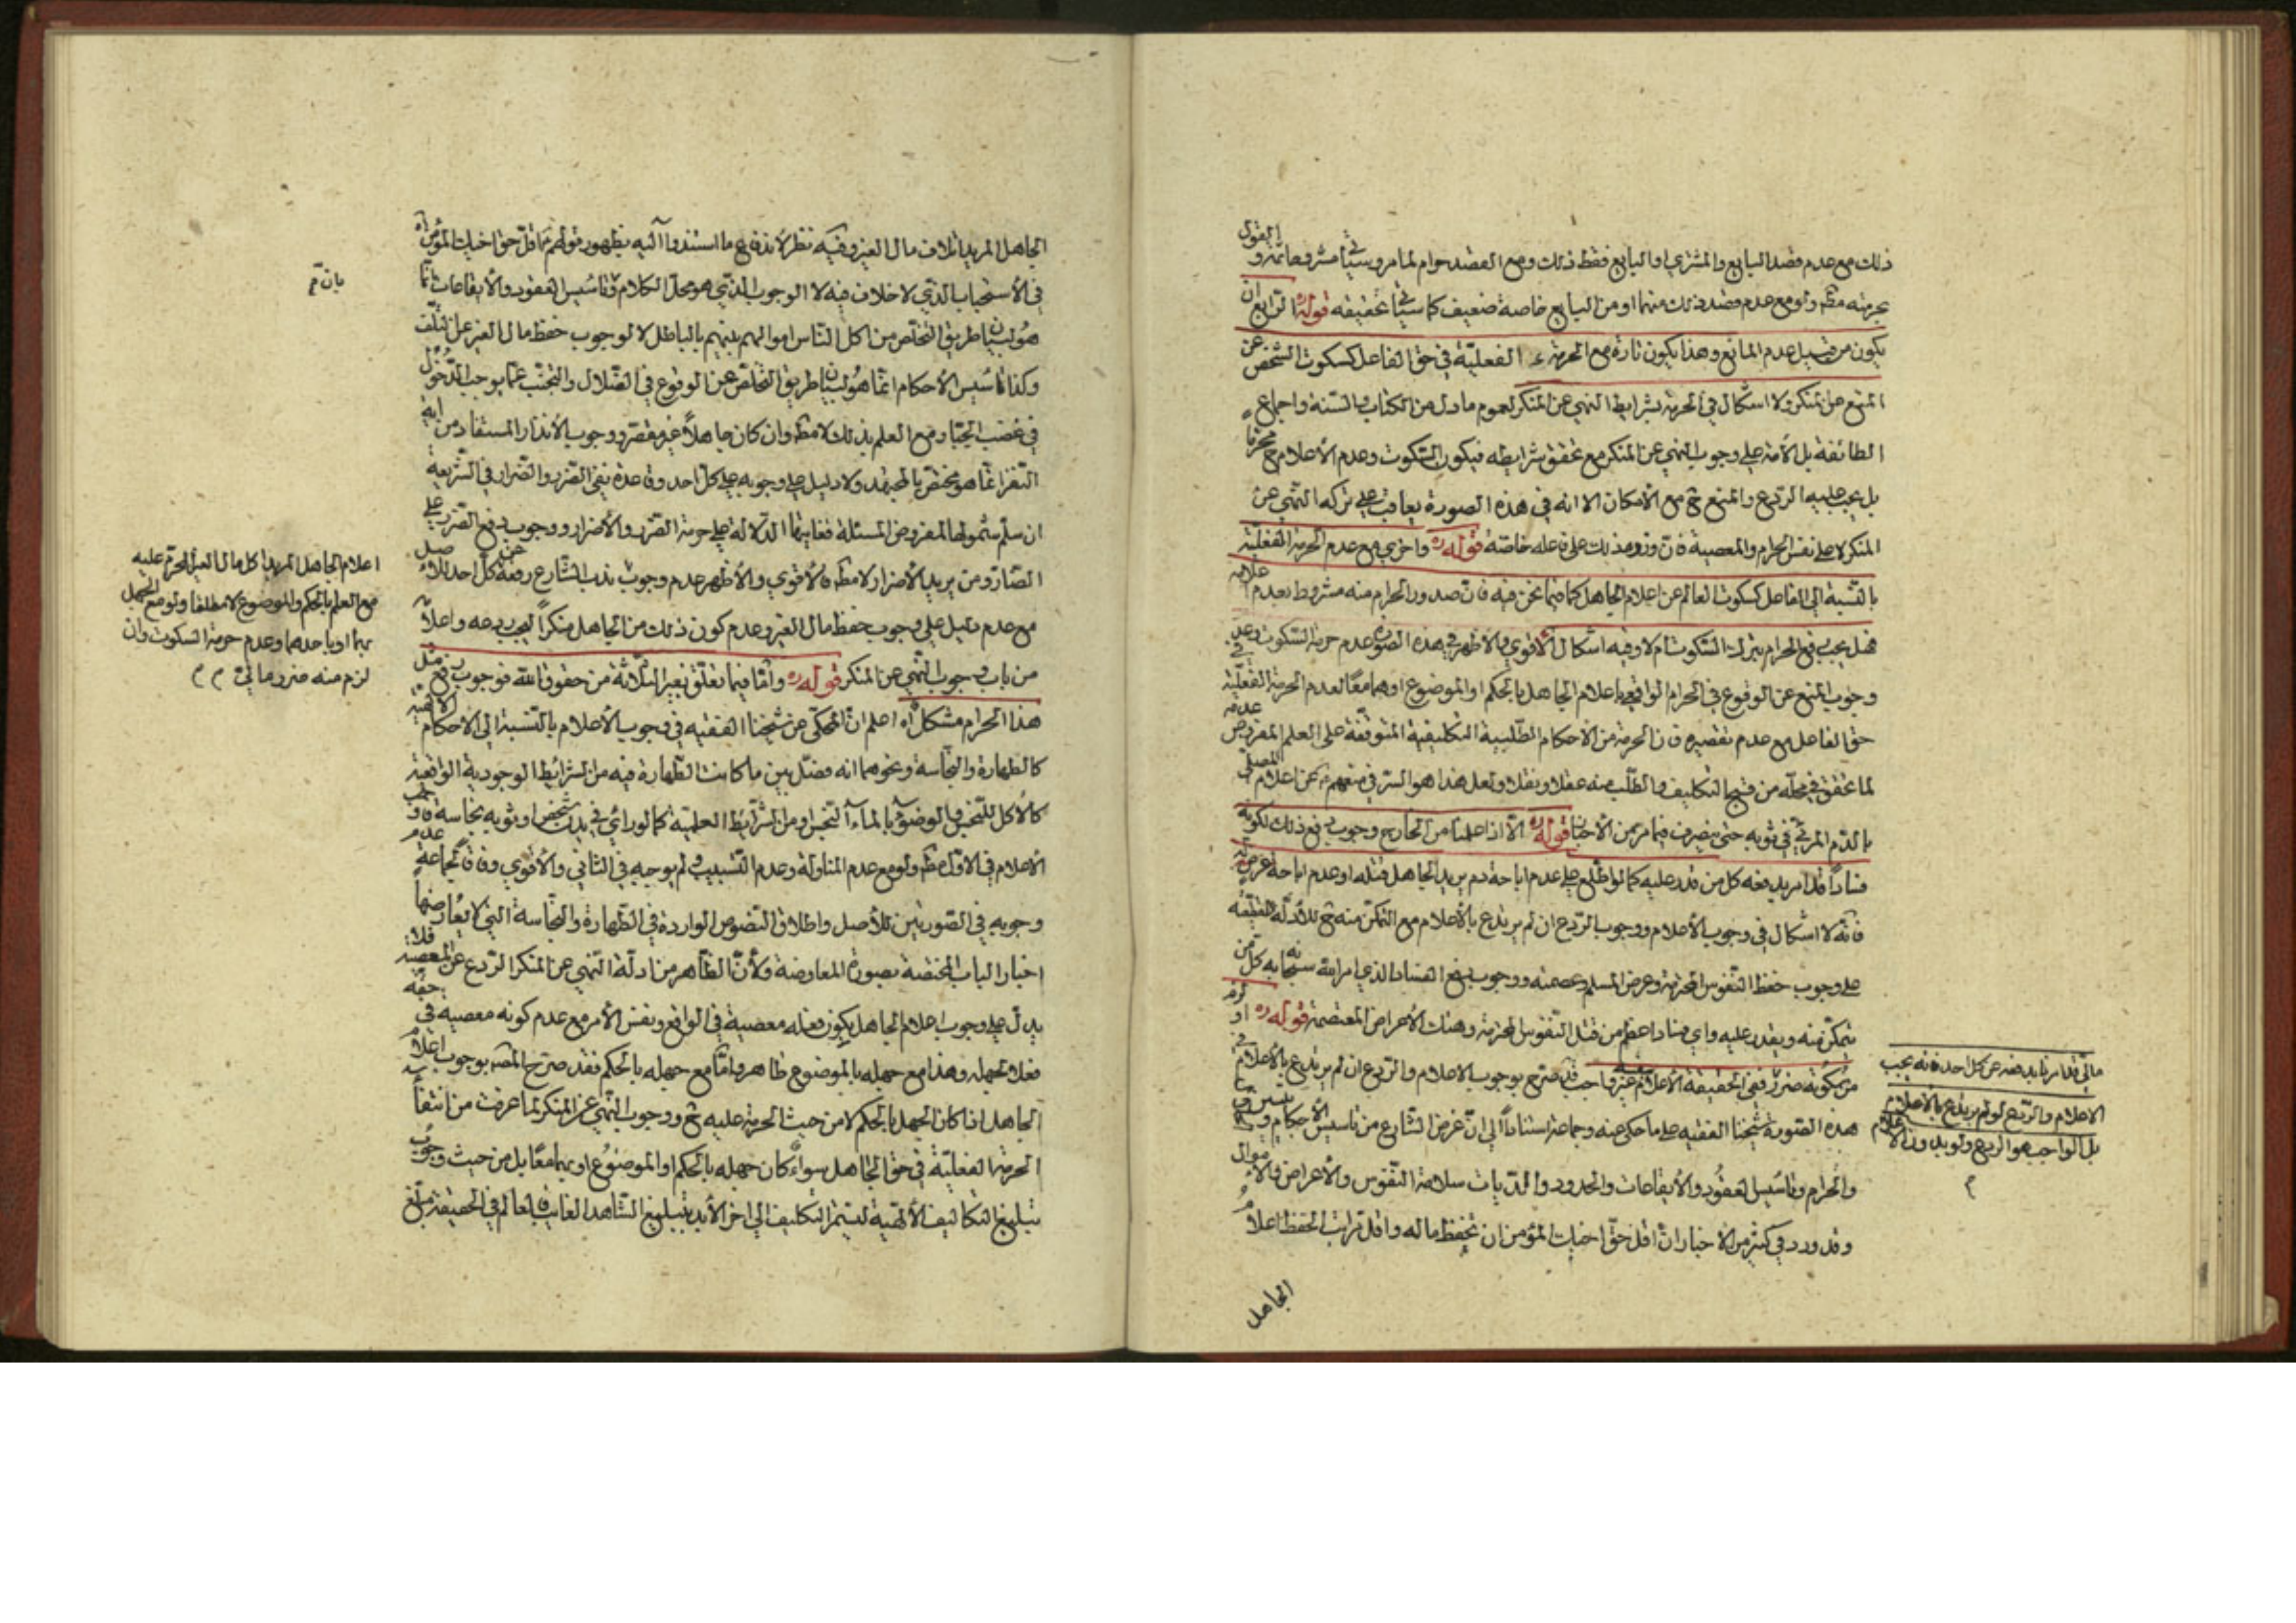 ذلك مع عدم قصد البايع والمشتري او البايع فقط ذلك ومع القصد حرام لما مر وسيأتي مشروحا نعم القول
بحرمته مطـ ولو مع عدم قصد ذلك منهما او من البايع خاصة ضعيف كما سيأتي تحقيقه قوله ره الرابع ان
يكون من قبيل عدم المانع وهذا يكون تارة مع الحرمة الفعلية في حق الفاعل كسكوت الشخص عن
المنع عن المنكر ولا اشكال في الحرمة بشرايط النهي عن المنكر لعموم ما دل من الكتاب والسنة واجماع
الطائفة بل الأمة على وجوب النهي عن المنكر مع تحقق شرايطه فيكون السكوت وعدم الأعلام ح محرما
بل يجب عليه الردع والمنع ح مع الأمكان الا انه في هذه الصورة يعاقب على تركه النهي عن
المنكر لا على نفس الحرام والمعصية فان وزر ذلك على فاعله خاصة قوله ره واخرى مع عدم الحرمة الفعلية
بالنسبة الى الفاعل كسكوت العالم عن اعلام الجاهل كما فيما نحن فيه فان صدور الحرام منه مشروط بعدم اعلامه
فهل يجب دفع الحرام بترك السكوت ام لا وفيه اشكال الاقوى والأظهر في هذه الصورة عدم حرمة السكوت وعدم
وجوب المنع عن الوقوع في الحرام الواقعي باعلام الجاهل بالحكم او الموضوع او هما معًا لعدم الحرمة الفعلية في
حق الفاعل مع عدم تقصيره فان الحرمة من الاحكام الطلبية التكليفية المتوقفة على العلم المفروض عدمه
لما تحقق في محله من قبح التكليف والطلب منه عقلا ونقلا ولعل هذا هو السر في منعهم عن اعلام المصلي
بالدم المرئي في ثوبه حتى ينصرف فيما مر من الأخبار قوله ره الا اذا علمنا من الخارج وجوب دفع ذلك لكونه
فسادًا قد امر بدفعه كل من قدر عليه كما لو اطلع على عدم اباحة دم يريد الجاهل قتله او عدم اباحة عرضه له
فانه لا اشكال في وجوب الأعلام ووجوب الردع ان لم يرتدع بالأعلام مع التمكن منه ح للأدلة القطعية
على وجوب حفظ النفوس المحترمة وعرض المسلم وعصمته ووجوب دفع الفساد الذي امر الله سبحانه به كل من
يتمكن منه ويقدر عليه واي فساد اعظم من قتل النفوس المحترمة وهتك الأعراض المعتصمة قوله ره او لزم
من سكوته ضرر ففي الحقيقة الأعلام غير واجب قد صرح بوجوب الاعلام والردع ان لم يرتدع بالأعلام في
هذه الصورة شيخنا الفقيه على ما حكي عنه وجماعة استنادًا الى ان غرض الشارع من تاسيس الأحكام
والحرام وتأسيس العقود والأيقاعات والحدود والديات سلامة النفوس والأعراض والاموال
وقد ورد في كثير من الاخبار ان اقل حق اخيك المؤمن ان تحفظ ماله واقل مراتب الحفظ اعلام
الجاهل
مالي قد امرنا بدفعه عن كل احد فانه يجب
الاعلام والردع لو لم يرتدع بالأعلام
بل الواجب هو الردع ولو بدون الاعلام
م
الجاهل المريد اتلاف مال الغير وفيه نظر لأندفاع ما استندوا اليه بظهور قولهم اقل حق اخيك المؤمن اه
في الأستحباب الذي لا خلاف فيه لا الوجوب الذي هو محل الكلام وتأسيس العقود والأيقاعات انما
هو لبيان طريق التخلص من اكل الناس اموالهم بينهم بالباطل لا لوجوب حفظ مال الغير عن التلف
وكذا تأسيس الأحكام انما هو لبيان طريق التخلص عن الوقوع في الضلال والتجنب عما يوجب الدخول
في غضب الجبار مع العلم بذلك لا مطـ وان كان جاهلاً غير مقصر ووجوب الأنذار المستفاد من اية
النفر انما هو مختص بالمجتهد ولا دليل على وجوبه على كل احد وقاعدة نفي الضرر والضرار في الشريعة
ان سلم شمولها لمفروض المسئلة فغايتها الدلالة على حرمة الضرر والأضرار ووجوب دفع الضرر على
الضار ومن يريد الأضرار لا مطـ فالأقوى والأظهر عدم وجوب ذلك الشارع رفعه عن كل احد للأصل
مع عدم دليل على وجوب حفظ مال الغير وعدم كون ذلك من الجاهل منكرًا ليجب ردعه واعلامه
من باب وجوب النهي عن المنكر قوله ره واما فيما تعلق بغير الثلاثة من حقوق الله فوجوب دفع مثل
هذا الحرام مشكل اه اعلم ان المحكي عن شيخنا الفقيه في وجوب الأعلام بالنسبة الى الاحكام الالهية
كالطهارة والنجاسة ونحوهما انه فصل بين ما كانت الطهارة فيه من الشرائط الوجودية الواقعية
كالأكل للنجس والوضوء بالماء النجس او من الشرايط العلمية كما لو رأى في بدن شخص او ثوبه نجاسة فاوجب
الأعلام في الاول مطـ ولو مع عدم المناولة وعدم التسبيب ولم يوجبه في الثاني والأقوى وفاقا لجماعة عدم
وجوبه في الصورتين للأصل واطلاق النصوص الواردة في الطهارة والنجاسة التي لا يعارضها
اخبار الباب المختصة بصورة المعاوضة ولأن الظاهر من ادلة النهي عن المنكر الردع عن المعصية فلا
يدل على وجوب اعلام الجاهل بكون فعله معصية في الواقع ونفس الأمر مع عدم كونه معصية في حقه
فعلا لجهله وهذا مع جهله بالموضوع ظاهر واما مع جهله بالحكم فقد صرح المصـ بوجوب اعلام
الجاهل اذا كان الجهل بالحكم لا من حيث الحرمة عليه ح ووجوب النهي عن المنكر لما عرفت من انتفاء
الحرمة الفعلية في حق الجاهل سواء كان جهله بالحكم او الموضوع او بهما معًا بل من حيث وجوب
تبليغ التكاليف الألهية ليستمر التكليف الى اخر الأبد بتبليغ الشاهد الغايب فالعالم في الحقيقة مبلغ
اعلام الجاهل المريد اكل مال الغير المحرم عليه
مع العلم بالحكم والموضوع لا مطلقا ولو مع الجهل
بهما او باحدهما وعدم حرمة السكوت وان
لزم منه ضرر مالي م م